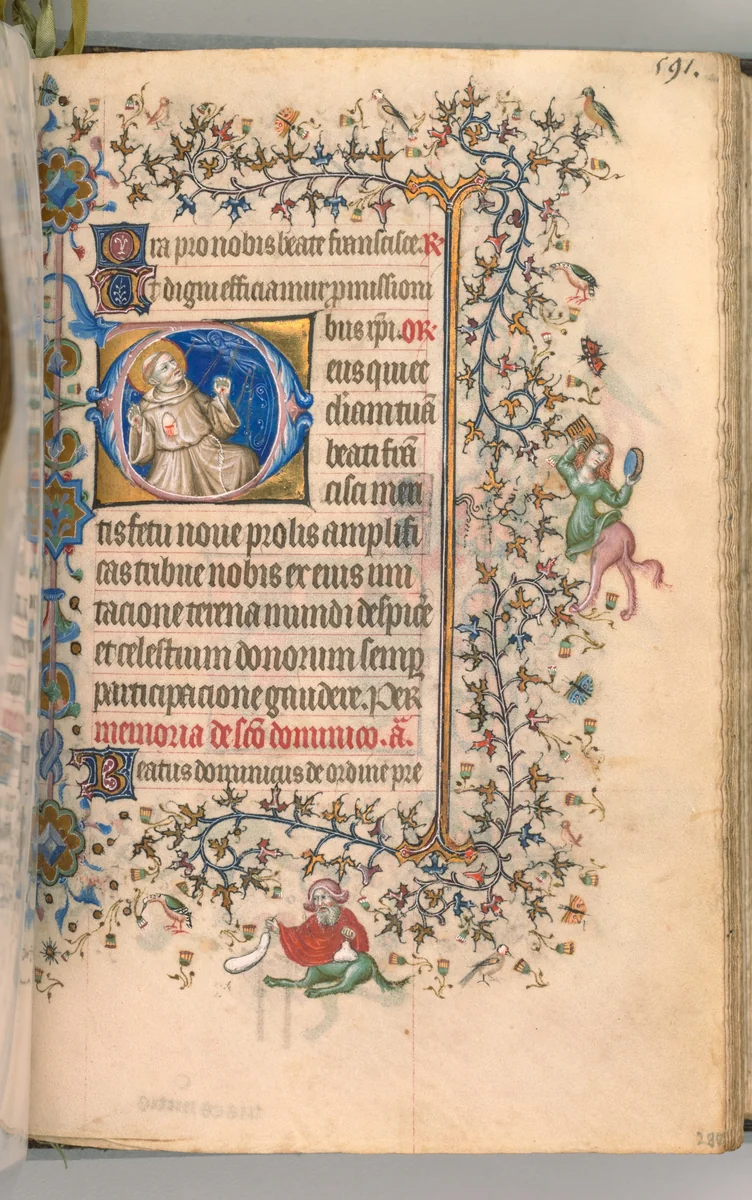 591.
Ora pro nobis beate francisce. R
Ut digni efficiamur p̲missioni
bus xp̄i. OR
eus qui ec
cliam tuā
beati frā
cisci meri
tis fetu noue prolis amplifi
cas tribue nobis ex eius imi
tacione terena mundi despice
et celestium donorum semp̲
participacione gaudere. Per
memoria de sc̄o dominico. a͞.
Beatus dominicus de ordine pre